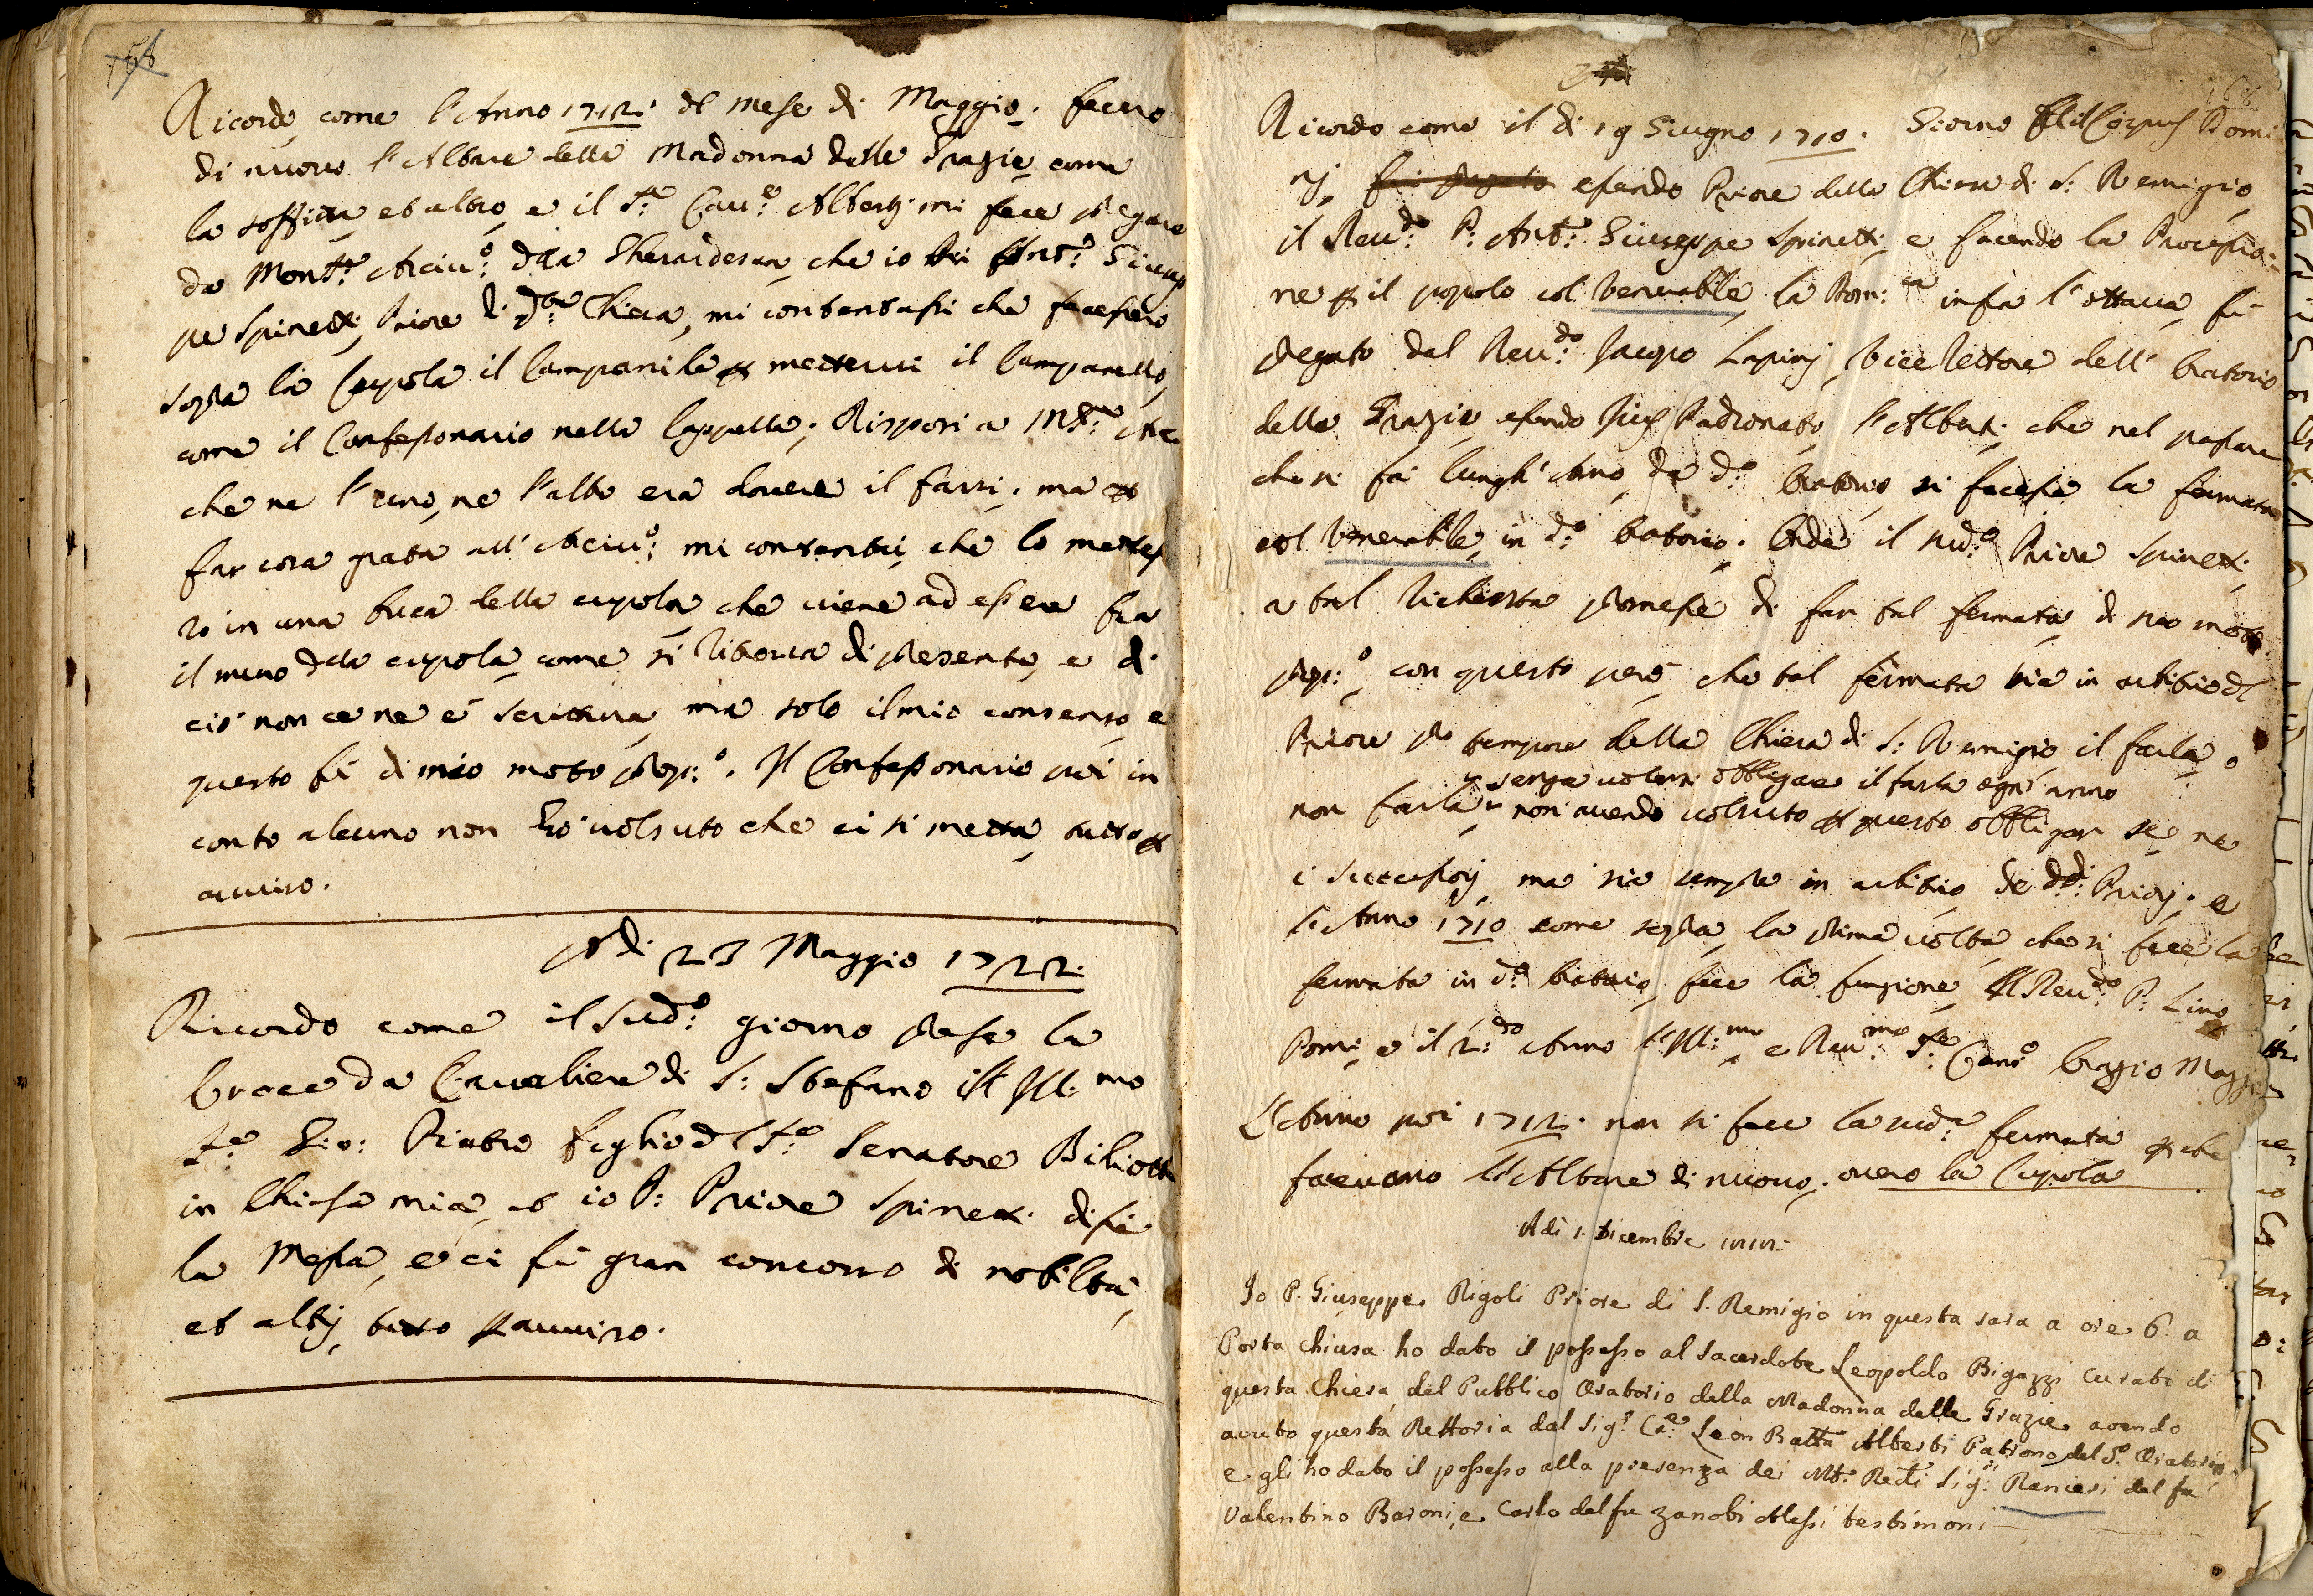 168
Ricordo come l'Anno 1712. del mese di Maggio. fecero
di nuovo l'Altare della Madonna delle Grazie come
la soffitta et altro, e il S.re Cau.re Alberti mi fece pregare
da Mons.re Arciu.o della Gherardesca, che io Ant.o Giusep
pe Spinetti, Priore di d.a Chiesa, mi contentassi che facessero
sopra la Cupola il Campanile per mettervi il Campanello,
come il Confessonario nella Cappella; Risposi a M.re Arc
che ne l'uno, ne l'altro era dovere il farsi, ma per
far cosa grata all'Arciu.o mi contentai, che lo mettes
ro in una buca della cupola che viene ad essere tra
il muro della cupola, come si ritrova di presente, e di
ciò non ce ne è scrittura, ma solo il mio consenso, e
questo fù di mio moto prop.o. Il Confessonario poi in
conto alcuno non hò volsuto che ci si metta, tutto per
avviso.
Adi 23 Maggio 1722.
Ricordo come il sud.o giorno prese la
Croce da Cavaliere di S: Stefano il Ill.mo
S.re Gio: Piatro figlio del S.re Senatore Biliotti
in Chiesa mia, et io P: Priore Spinetti dissi
la Messa, e ci fù gran concorso di nobiltà,
et altrj, tutto per avviso.
168
Ricordo come il di 19 Giugno 1710. Giorno del Corpus Domi
nj, essendo Priore della Chiesa di S: Remigio
il Reu.do P: Ant.o Giuseppe Spinetti, e facendo la Processio=
ne per il popolo col Venerabile, la Dom.ca infra l'ottava, fù
pregato dal Reu.do Jacopo Lapinj, Vice Rettore dell' Oratorio
delle Grazie essendo Jus Padronato l'Alberti che nel passare
che si fa lungh'Arno da d.o Oratorio, si facesse la fermata
col Venerabile, in d.o Oratorio. Onde il sud.o Priore Spinetti,
a tal richiesta promesse di far tal fermata, di suo moto
prop.o, con questo però che tal fermata sia in arbitrio del
Priore pro tempore della Chiesa di S: Remigio il farla, o
senza volersi obbligare il farla ogn'anno
non farla, non avendo volsuto per questo obbligar se ne
i Successorj, ma sia sempre in arbitrio de dd: Priorj. e
l'Anno 1710 come sopra, la prima volta, che si fece la
fermata in d.o Oratorio, fece la funzione, il Reu.do P: Lino
Pomi, e il 2.do Anno l'Ill.mo e Reu.mo S.re Can.o Orazio Mazz
L'Anno poi 1712. non si fece la sud.a fermata per che
facevano l'Altare di nuovo, overo la Cupola
Adi 1. Dicembre
Io P. Giuseppe Rigoli Priore di S. Remigio in questa sera a ore 6. a
Porta chiusa ho dato il possesso al Sacerdote Leopoldo Bigazzi Curato di
questa Chiesa, del Pubblico Oratorio della Madonna delle Grazie avendo
avuto questa Rettoria dal Sig.r Ca.re Leon Batta Alberti Patrono del d.o Oratorio
e gli ho dato il possesso alla presenza dei M.to Red.i Sig.ri Ranieri del fu
Valentino Baroni, e Carlo del fu Zanobi Alessi testimoni